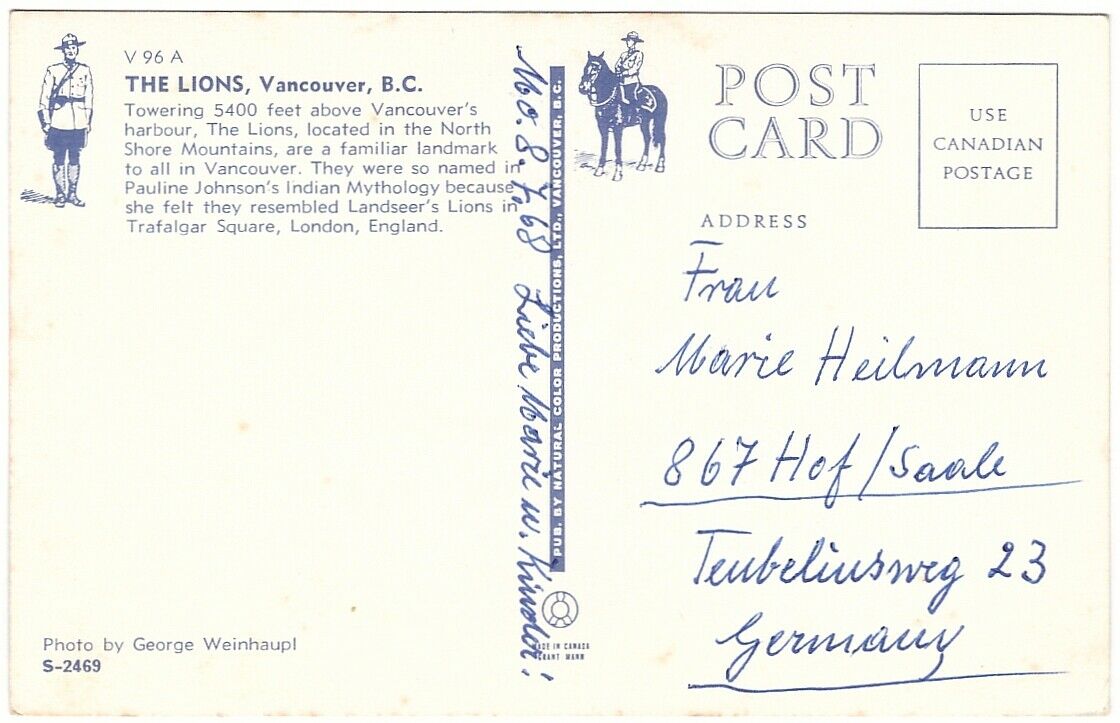 V 96 A
THE LIONS, Vancouver, B.C.
Towering 5400 feet above Vancouver's
harbour, The Lions, located in the North
Shore Mountains, are a familiar landmark
to all in Vancouver. They were so named in
Pauline Johnson's Indian Mythology because
she felt they resembled Landseer's Lions in
Trafalgar Square, London, England.
Photo by George Weinhaupl
S-2469
Mo. 8. 7. 68 Liebe Marie u. Kinder!
PUB. BY NATURAL COLOR PRODUCTIONS, LTD., VANCOUVER, B.C.
MADE IN CANADA
GRANT MANN
POST
CARD
USE
CANADIAN
POSTAGE
ADDRESS
Frau
Marie Heilmann
867 Hof/Saale
Teubeliusweg 23
Germany